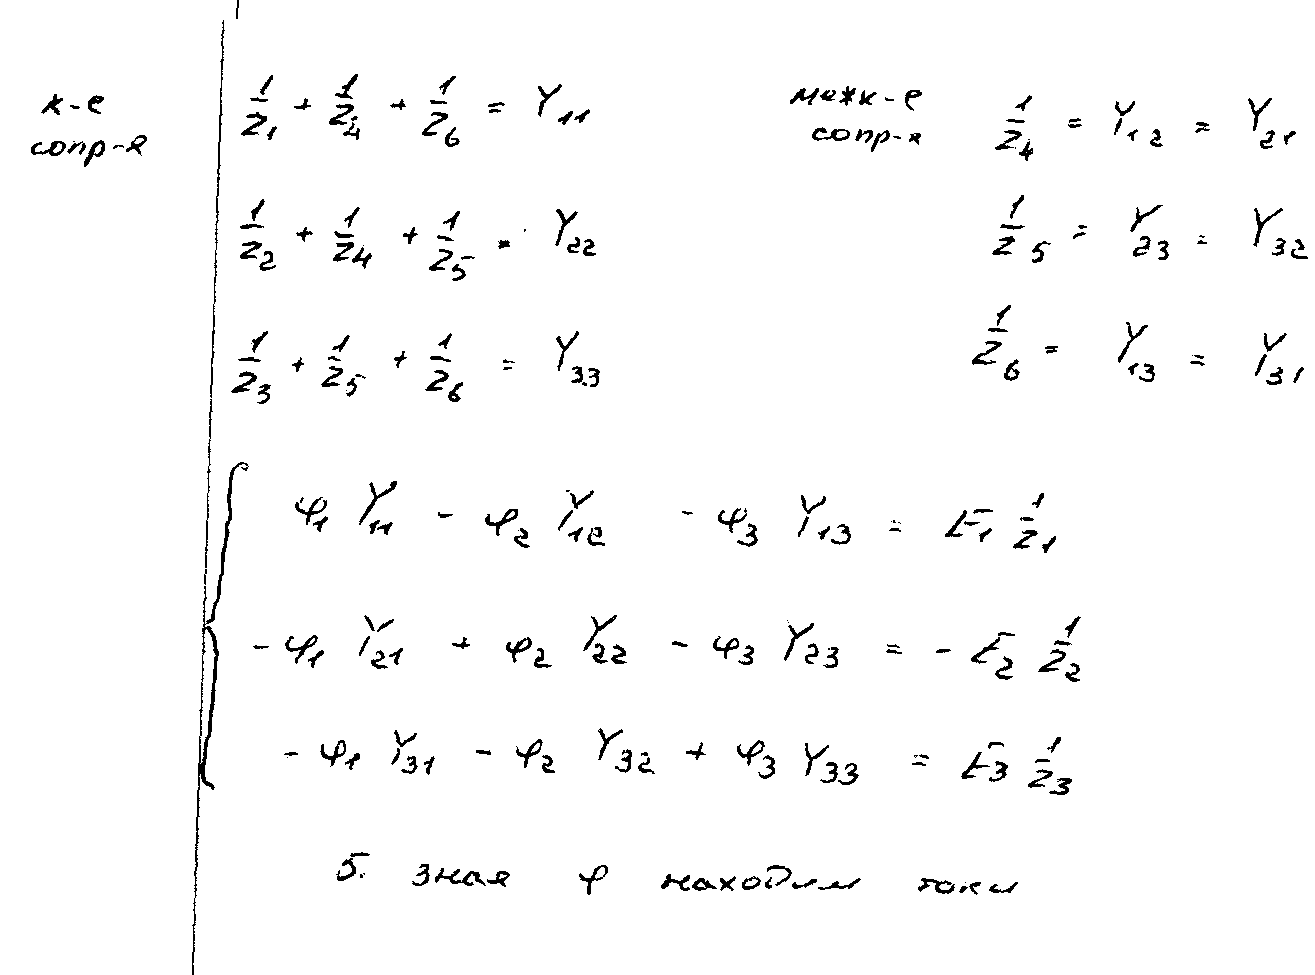 к-е сопр-я
1/Z₁ + 1/Z₄ + 1/Z₆ = Y₁₁
1/Z₂ + 1/Z₄ + 1/Z₅ = Y₂₂
1/Z₃ + 1/Z₅ + 1/Z₆ = Y₃₃
межк-е сопр-я
1/Z₄ = Y₁₂ = Y₂₁
1/Z₅ = Y₂₃ = Y₃₂
1/Z₆ = Y₁₃ = Y₃₁
φ₁ Y₁₁ - φ₂ Y₁₂ - φ₃ Y₁₃ = E₁ 1/Z₁
- φ₁ Y₂₁ + φ₂ Y₂₂ - φ₃ Y₂₃ = - E₂ 1/Z₂
- φ₁ Y₃₁ - φ₂ Y₃₂ + φ₃ Y₃₃ = E₃ 1/Z₃
5. зная φ находим токи